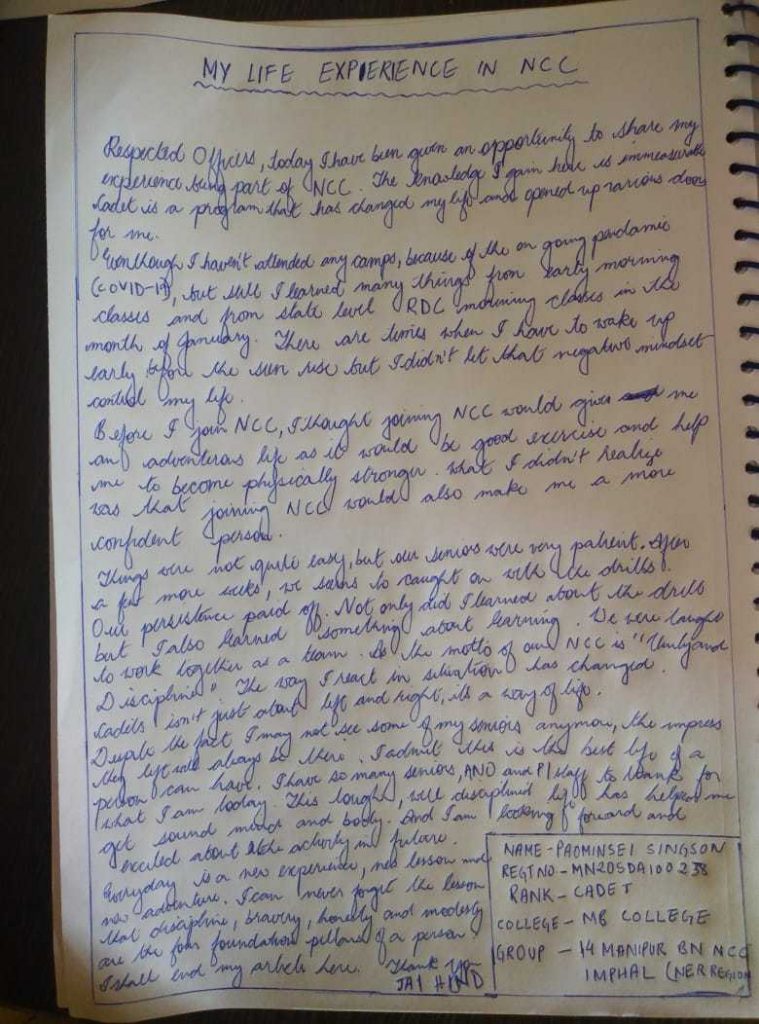 MY LIFE EXPIERIENCE IN NCC
Respected Officers, today I have been given an opportunity to share my
experience being part of NCC. The knowledge I gain here is immeasurable
Cadet is a program that has changed my life and opened up various doors
for me.
Eventhough I haven't attended any camps, because of the on going pandamic
(COVID-19), but still I learned many things from early morning
classes and from state level RDC morning classes in the
month of January. There are times when I have to wake up
early before the sun rise but I didn't let that negative mindset
control my life.
Before I join NCC, I thought joining NCC would give me
an adventerous life as it would be good exercise and help
me to become physically stronger. What I didn't realize
was that joining NCC would also make me a more
confident person.
Things were not quite easy, but our seniors were very patient. After
a few more weeks, we seems to caught on with the drills.
Our persistence paid off. Not only did I learned about the drills
but I also learned something about learning. We were taught
to work together as a team. As the motto of our NCC is "Unity and
Discipline" The way I react in situation has changed.
Cadets isn't just about left and right, its a way of life.
Despite the fact I may not see some of my seniors anymore, the impress
they left will always be there. I admit this is the best life of a
person can have. I have so many seniors, ANO and PI staff to thanks for
what I am today. This tough, well disciplined life has helped me
get sound mind and body. And I am looking forward and
excited about the activity in future.
Everyday is a new experience, new lesson and
new adventure. I can never forget the lesson
that discipline, bravery, honesty and modesty
are the four foundation pillars of a person.
I shall end my article here. Thank you
JAI HIND
NAME - PAOMINSEI SINGSON
REGTNO - MN20SDA100238
RANK - CADET
COLLEGE - MB COLLEGE
GROUP - 14 MANIPUR BN NCC
IMPHAL (NER REGION